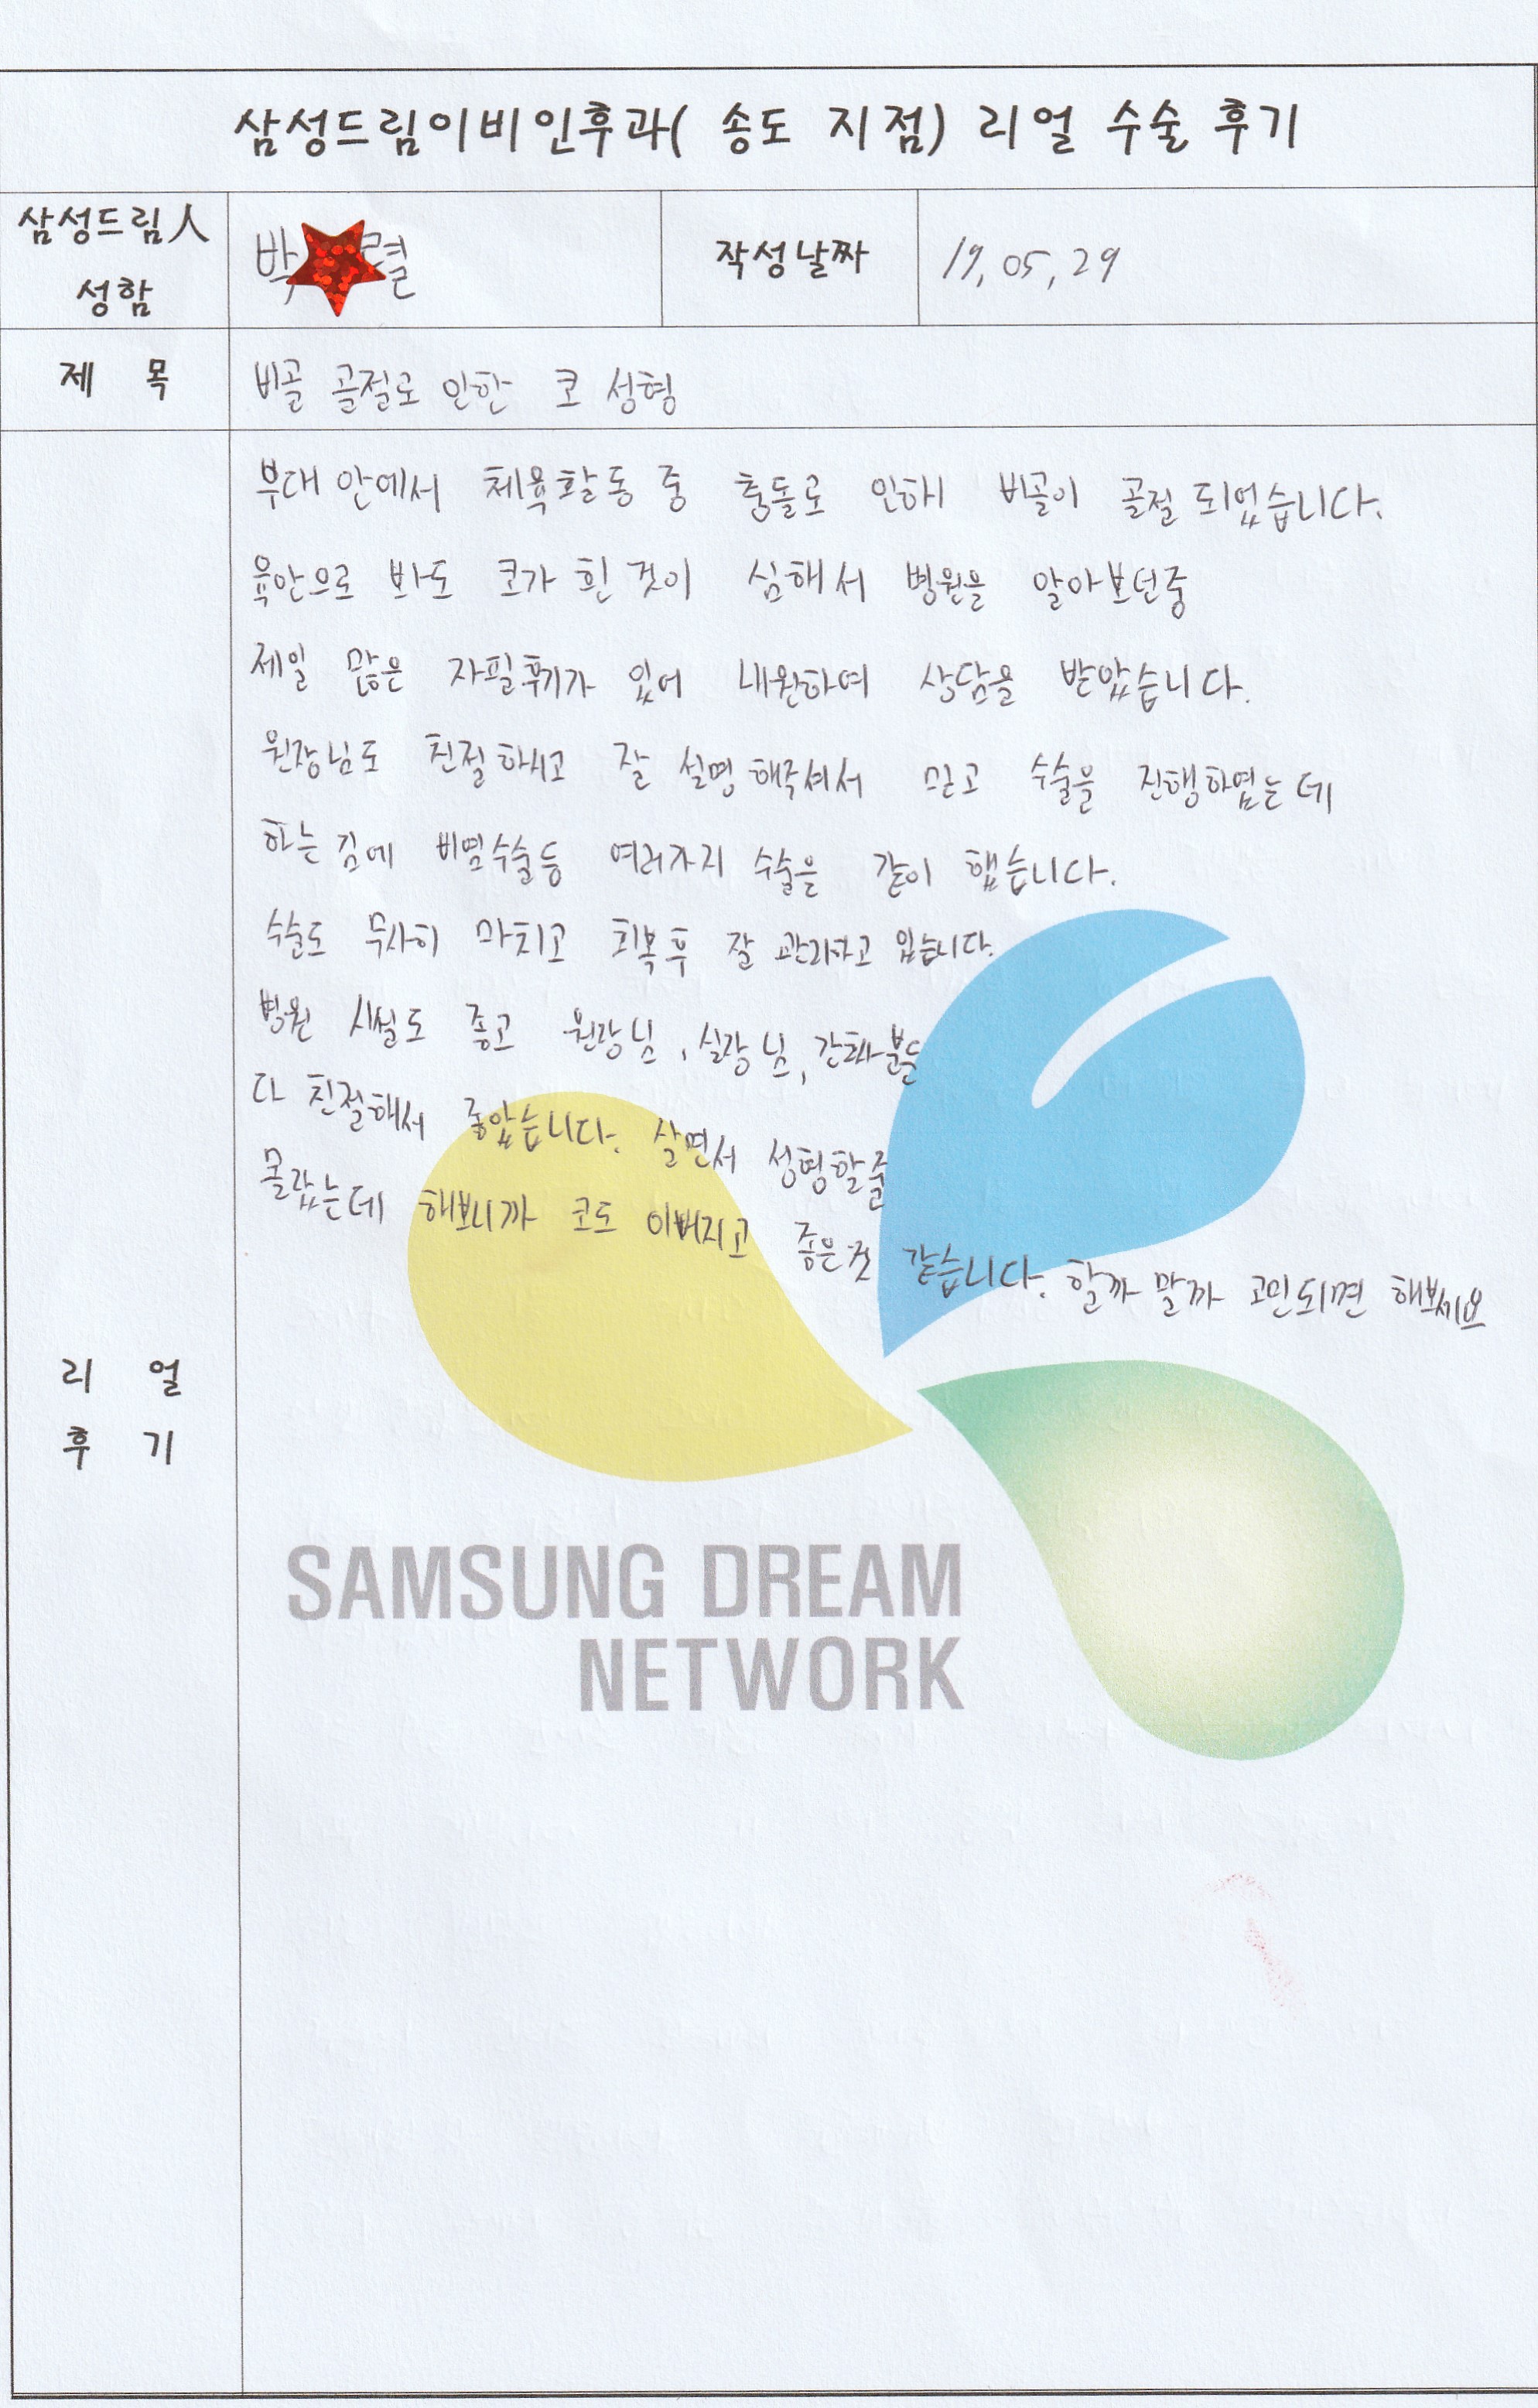 삼성드림이비인후과( 송도 지점) 리얼 수술 후기
삼성드림人
성함
박
작성날짜
19, 05, 29
제 목
비골 골절로 인한 코 성형
부대 안에서 체육활동 중 충돌로 인해 비골이 골절 되었습니다.
육안으로 봐도 코가 휜 것이 심해서 병원을 알아보던중
제일 많은 자필후기가 있어 내원하여 상담을 받았습니다.
원장님도 친절하시고 잘 설명해주셔서 믿고 수술을 진행하였는데
하는김에 비염수술등 여러가지 수술을 같이 했습니다.
수술도 무사히 마치고 회복후 잘 관리하고 있습니다.
병원 시설도 좋고 원장님, 실장님, 간호사분들
다 친절해서 좋았습니다. 살면서 성형할줄
몰랐는데 해보니까 코도 이뻐지고 좋은것 같습니다. 할까 말까 고민되면 해보세요
리 얼
후 기
SAMSUNG DREAM
NETWORK